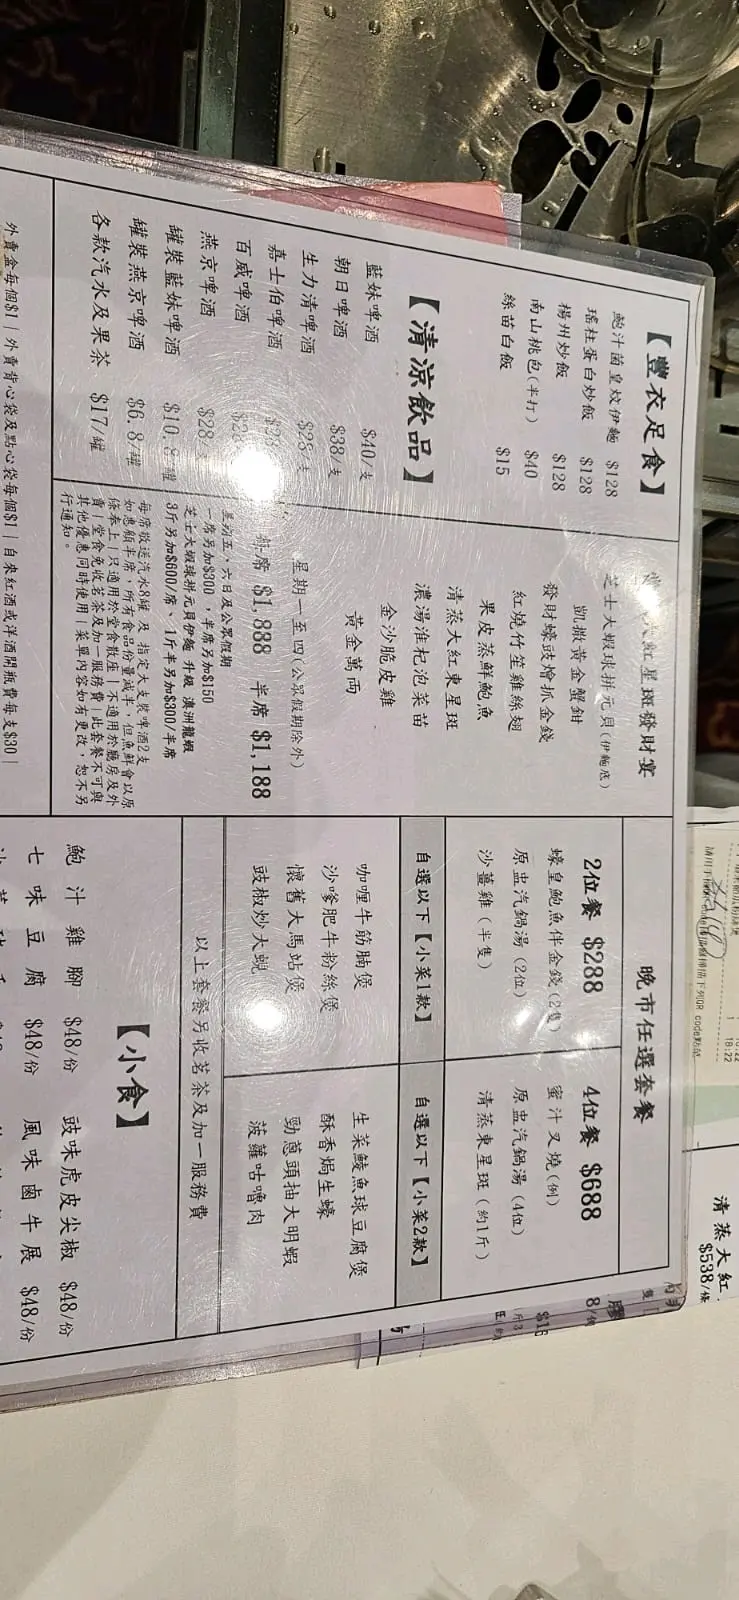 【豐衣足食】
鮑汁菌皇炆伊麵 $128
瑤柱蛋白炒飯 $128
楊州炒飯 $128
南山桃包(半打) $40
絲苗白飯 $15
【清涼飲品】
藍妹啤酒 $40/支
朝日啤酒 $38/支
生力清啤酒 $28/支
嘉士伯啤酒
百威啤酒
燕京啤酒 $28/支
罐裝藍妹啤酒 $10.8/罐
罐裝燕京啤酒 $6.8/罐
各款汽水及果茶 $17/罐
紅星斑發財宴
芝士大蝦球拼元貝(伊麵底)
凱撒黃金蟹鉗
發財蠔豉燴抓金錢
紅燒竹笙雞絲翅
果皮蒸鮮鮑魚
清蒸大紅東星斑
濃湯淮杞泡菜苗
金沙脆皮雞
黃金萬両
星期一至四(公眾假期除外)
每席 $1,888 半席 $1,188
星期五、六日及公眾假期
一席另加$300，半席另加$150
芝士大蝦球拼元貝伊麵 升級 澳洲龍蝦
3斤另加$600/席、1斤半另加$300/半席
每席敬送汽水8罐 及 指定大支裝啤酒2支
如惠顧半席，所有食品份量減半，但魚鮮會以原
條奉上│只適用於堂食散座│不適用於廳房及外
賣│堂食免收茗茶及加一服務費│此套餐不可與
其他優惠同時使用│菜單內容如有更改，恕不另
行通知。
外賣盒每個$1│外賣背心袋及點心袋每個$1│自來紅酒或洋酒開瓶費每支$30│
晚市任選套餐
2位餐 $288
蠔皇鮑魚伴金錢(2隻)
原盅汽鍋湯(2位)
沙薑雞(半隻)
自選以下【小菜1款】
咖喱牛筋腩煲
沙嗲肥牛粉絲煲
懷舊大馬站煲
豉椒炒大蜆
4位餐 $688
蜜汁叉燒(例)
原盅汽鍋湯(4位)
清蒸東星斑(約1斤)
自選以下【小菜2款】
生菜鯪魚球豆腐煲
酥香焗生蠔
勁蔥頭抽大明蝦
菠蘿咕嚕肉
以上套餐另收茗茶及加一服務費
【小食】
鮑汁雞腳 $48/份
豉味虎皮尖椒 $48/份
七味豆腐 $48/份
風味鹵牛展 $48/份
清蒸大紅
$538/條
18:22